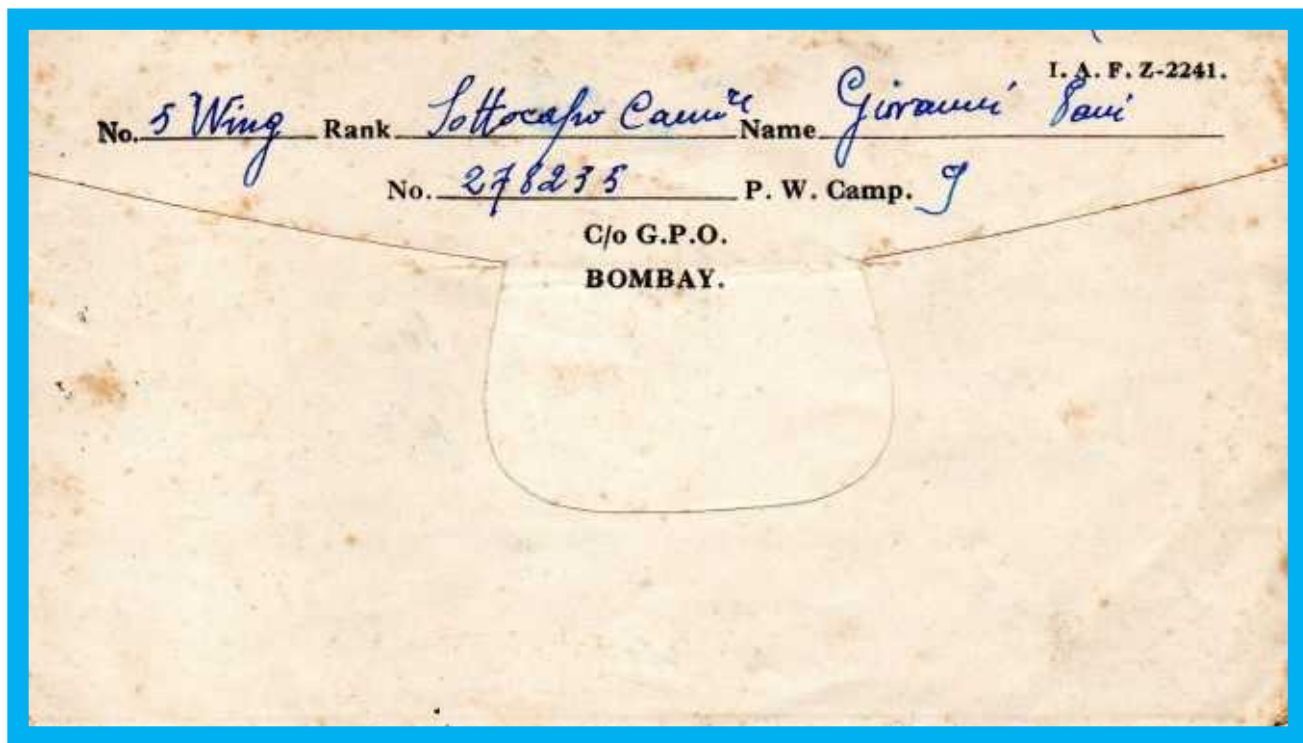 I. A. F. Z-2241.
No. 5 Wing Rank Sottocapo Cann.re Name Giovanni Pani
No. 278235 P. W. Camp. 9
C/o G.P.O.
BOMBAY.